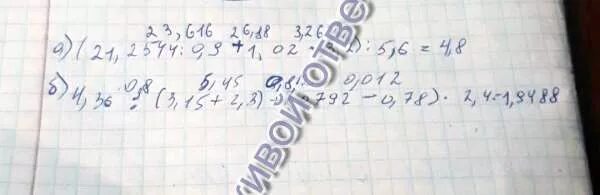 23,616 26,88 3,26
а) (21,2544 : 0,9 + 1,02 ) : 5,6 = 4,8
0,8 5,45 0,8 0,012
б) 4,36 : (3,15 + 2,3) 792 - 0,78) · 2,4 = 1,9488
живой отве